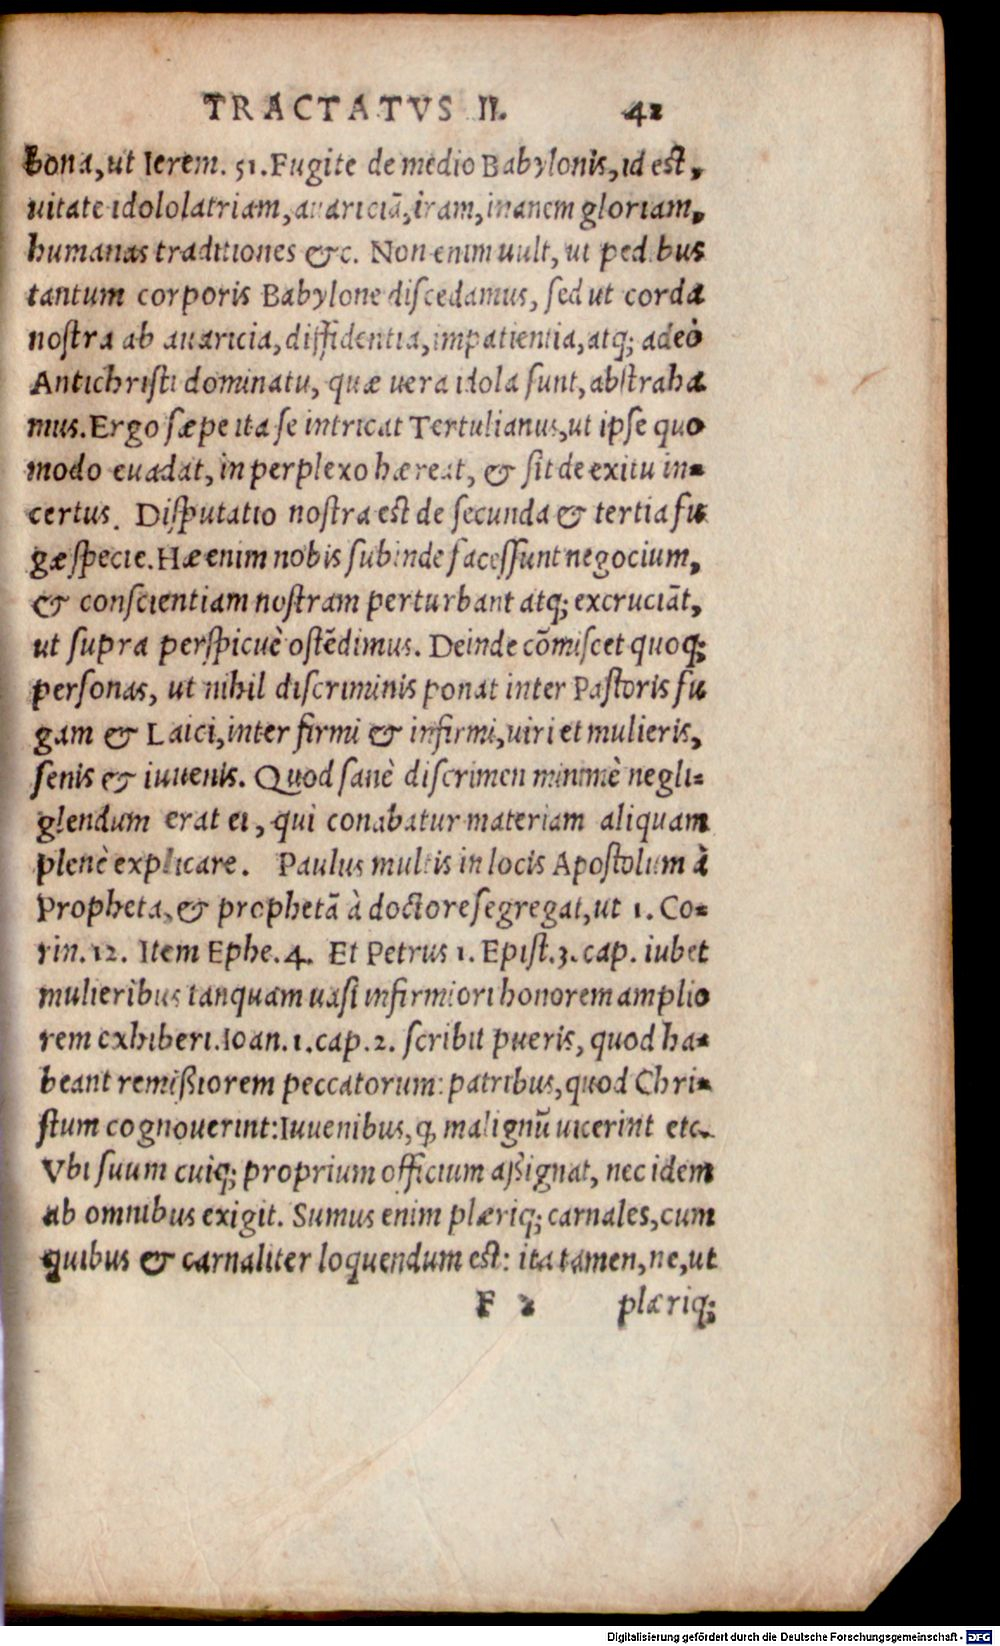 TRACTATVS II. 42
bona, ut Ierem. 51. Fugite de medio Babylonis, id est,
uitate idololatriam, auariciā, iram, inanem gloriam,
humanas traditiones &c. Non enim uult, ut pedibus
tantum corporis Babylone discedamus, sed ut corda
nostra ab auaricia, diffidentia, impatientia, atq; adeò
Antichristi dominatu, quæ uera idola sunt, abstraha
mus. Ergo sæpe ita se intricat Tertulianus, ut ipse quo
modo euadat, in perplexo hæreat, & sit de exitu in-
certus. Disputatio nostra est de secunda & tertia fu
gæ specie. Hæ enim nobis subinde facessunt negocium,
& conscientiam nostram perturbant atq; excruciāt,
ut supra perspicuè ostēdimus. Deinde cōmiscet quoq;
personas, ut nihil discriminis ponat inter Pastoris fu
gam & Laici, inter firmi & infirmi, uiri et mulieris,
senis & iuuenis. Quod sanè discrimen minimè negli-
glendum erat ei, qui conabatur materiam aliquam
plenè explicare. Paulus multis in locis Apostolum à
Propheta, & prophetā à doctore segregat, ut 1. Co-
rin. 12. Item Ephe. 4. Et Petrus 1. Epist. 3. cap. iubet
mulieribus tanquam uasi infirmiori honorem amplio
rem exhiberi. Ioan. 1. cap. 2. scribit pueris, quod ha-
beant remißiorem peccatorum: patribus, quod Chri-
stum cognouerint: Iuuenibus, q, malignū uicerint etc.
Vbi suum cuiq; proprium officium aßignat, nec idem
ab omnibus exigit. Sumus enim plæriq; carnales, cum
quibus & carnaliter loquendum est: ita tamen, ne, ut
F 2 plæriq;
Digitalisierung gefördert durch die Deutsche Forschungsgemeinschaft - DFG